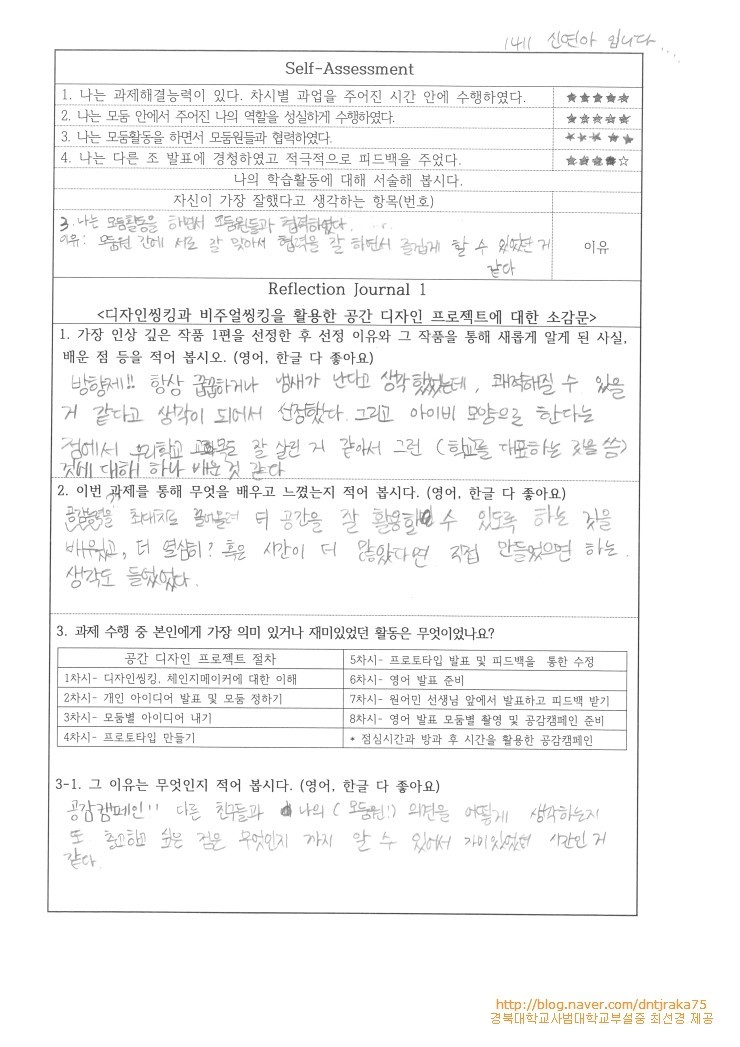 1411 신연아 입니다....
Self-Assessment
1. 나는 과제해결능력이 있다. 차시별 과업을 주어진 시간 안에 수행하였다. ★★★★★
2. 나는 모둠 안에서 주어진 나의 역할을 성실하게 수행하였다. ★★★★★
3. 나는 모둠활동을 하면서 모둠원들과 협력하였다. ★★★★★
4. 나는 다른 조 발표에 경청하였고 적극적으로 피드백을 주었다. ★★★★☆
나의 학습활동에 대해 서술해 봅시다.
자신이 가장 잘했다고 생각하는 항목(번호)
3. 나는 모둠활동을 하면서 모둠원들과 협력하였다.
이유: 모둠원 간에 서로 잘 맞아서 협력을 잘 하면서 즐겁게 할 수 있었던 거
같다
이유
Reflection Journal 1
<디자인씽킹과 비주얼씽킹을 활용한 공간 디자인 프로젝트에 대한 소감문>
1. 가장 인상 깊은 작품 1편을 선정한 후 선정 이유와 그 작품을 통해 새롭게 알게 된 사실,
배운 점 등을 적어 봅시오. (영어, 한글 다 좋아요)
방향제!! 항상 꿉꿉하거나 냄새가 난다고 생각했었는데, 쾌적해질 수 있을
거 같다고 생각이 되어서 선정했다. 그리고 아이비 모양으로 한다는
점에서 우리학교 교화목도 잘 살린 거 같아서 그런 (학교를 대표하는 것을 씀)
것에 대해 하나 배운 것 같다
2. 이번 과제를 통해 무엇을 배우고 느꼈는지 적어 봅시다. (영어, 한글 다 좋아요)
최대치로 끌어올려 더 공간을 잘 활용할 수 있도록 하는 것을
배웠고, 더 열심히? 혹은 시간이 더 많았다면 직접 만들었으면 하는
생각도 들었었다.
3. 과제 수행 중 본인에게 가장 의미 있거나 재미있었던 활동은 무엇이었나요?
공간 디자인 프로젝트 절차
1차시- 디자인씽킹, 체인지메이커에 대한 이해
2차시- 개인 아이디어 발표 및 모둠 정하기
3차시- 모둠별 아이디어 내기
4차시- 프로토타입 만들기
5차시- 프로토타입 발표 및 피드백을 통한 수정
6차시- 영어 발표 준비
7차시- 원어민 선생님 앞에서 발표하고 피드백 받기
8차시- 영어 발표 모둠별 촬영 및 공감캠페인 준비
* 점심시간과 방과 후 시간을 활용한 공감캠페인
3-1. 그 이유는 무엇인지 적어 봅시다. (영어, 한글 다 좋아요)
공감캠페인!! 다른 친구들과 나의 (모둠원!) 의견을 어떻게 생각하는지
또 충고하고 싶은 점은 무엇인지 까지 알 수 있어서 가미있었던 시간인 거
같다.
http://blog.naver.com/dntjraka75
경북대학교사범대학교부설중 최선경 제공